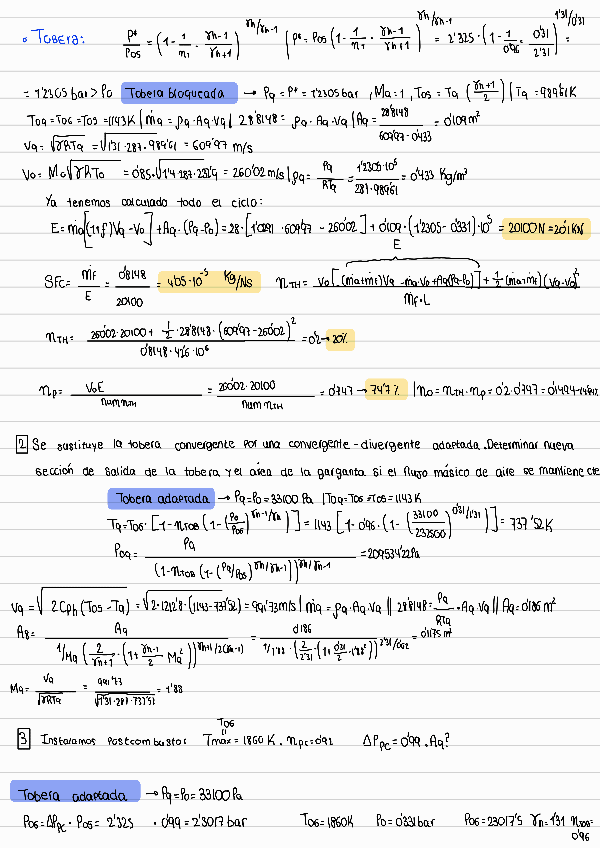 • TOBERA: P*/P05 = (1 - 1/ηT · γn-1/γn+1)^γn/γn-1 | P* = P05 (1 - 1/ηT · γn-1/γn+1)^γn/γn-1 = 2'325 · (1 - 1/0'96 · 0'31/2'31)^1'31/0'31 =
= 1'2305 bar > P0 Tobera bloqueada → P9 = P* = 1'2305 bar, M9 = 1, T05 = T9 (γn+1/2) | T9 = 989'61K
T09 = T06 = T05 = 1143K | ṁ9 = ρ9 · A9 · V9 | 28'8148 = ρ9 · A9 · V9 | A9 = 28'8148/609'97 · 0'433 = 0'109 m²
V9 = √γRT9 = √1'31 · 287 · 989'61 = 609'97 m/s
V0 = M0√γRT0 = 0'85 · √1'4 · 287 · = 260'02 m/s | ρ9 = P9/RT9 = 1'2305 · 10⁵/287 · 989'61 = 0'433 Kg/m³
Ya tenemos calculado todo el ciclo:
E = ṁa[(1+f)V9 - V0] + A9 · (P9-P0) = 28 · [1'0291 · 609'97 - 260'02] + 0'109 · (1'2305 - 0'331) · 10⁵ = 20100N = 20'1 KN
E
SFC = ṁF/E = 0'8148/20100 = 4'05 · 10⁻⁵ Kg/Ns ηTH = V0[(ṁa+ṁF)V9 - ṁa·V0 + A9(P9-P0)] + 1/2 (ṁa+ṁF)(V9-V0)²/ṁF · L
ηTH = 260'02 · 20100 + 1/2 · 28'8148 · (609'97 - 260'02)²/0'8148 · 42'6 · 10⁶ = 0'2 → 20%
ηP = V0E/num ηTH = 260'02 · 20100/num ηTH = 0'747 → 74'7% | η0 = ηTH · ηP = 0'2 · 0'747 = 0'1494 = 14'94%
2 Se sustituye la tobera convergente por una convergente-divergente adaptada. Determinar nueva
sección de salida de la tobera y el área de la garganta si el flujo másico de aire se mantiene cte
Tobera adaptada → P9 = P0 = 33100 Pa | T09 = T06 = T05 = 1143K
T9 = T05 · [1 - ηTOB (1 - (P0/P05)^γn-1/γn)] = 1143 [1 - 0'96 · (1 - (33100/232500)^0'31/1'31)] = 737'52K
P09 = P9/(1 - ηTOB (1 - (P9/P05)^γn/γn-1))^γn/γn-1 = 209534'22Pa
V9 = √2 Cph (T05 - T9) = √2 · 1212'8 · (1143 - 737'52) = 991'73 m/s | ṁ9 = ρ9 · A9 · V9 || 28'8148 = P9/RT9 · A9 · V9 || A9 = 0'186 m²
A8 = A9/1/M9 (2/γn+1 · (1 + γn-1/2 M9²))^γn+1/2(γn-1) = 0'186/1/1'88 · (2/2'31 · (1 + 0'31/2 · 1'88²))^2'31/0'62 = 0'1175 m²
M9 = V9/√γRT9 = 991'73/√1'31 · 287 · 737'52 = 1'88
T06
3 Instalamos Postcombustor Tmáx = 1860 K . ηpc = 0'92 ΔPPC = 0'99 . A9?
Tobera adaptada → P9 = P0 = 33100 Pa
P06 = ΔPPC · P05 = 2'325 · 0'99 = 2'3017 bar T06 = 1860K P0 = 0'331bar P06 = 2'3017'5 γn = 1'31 ηTOB = 0'96